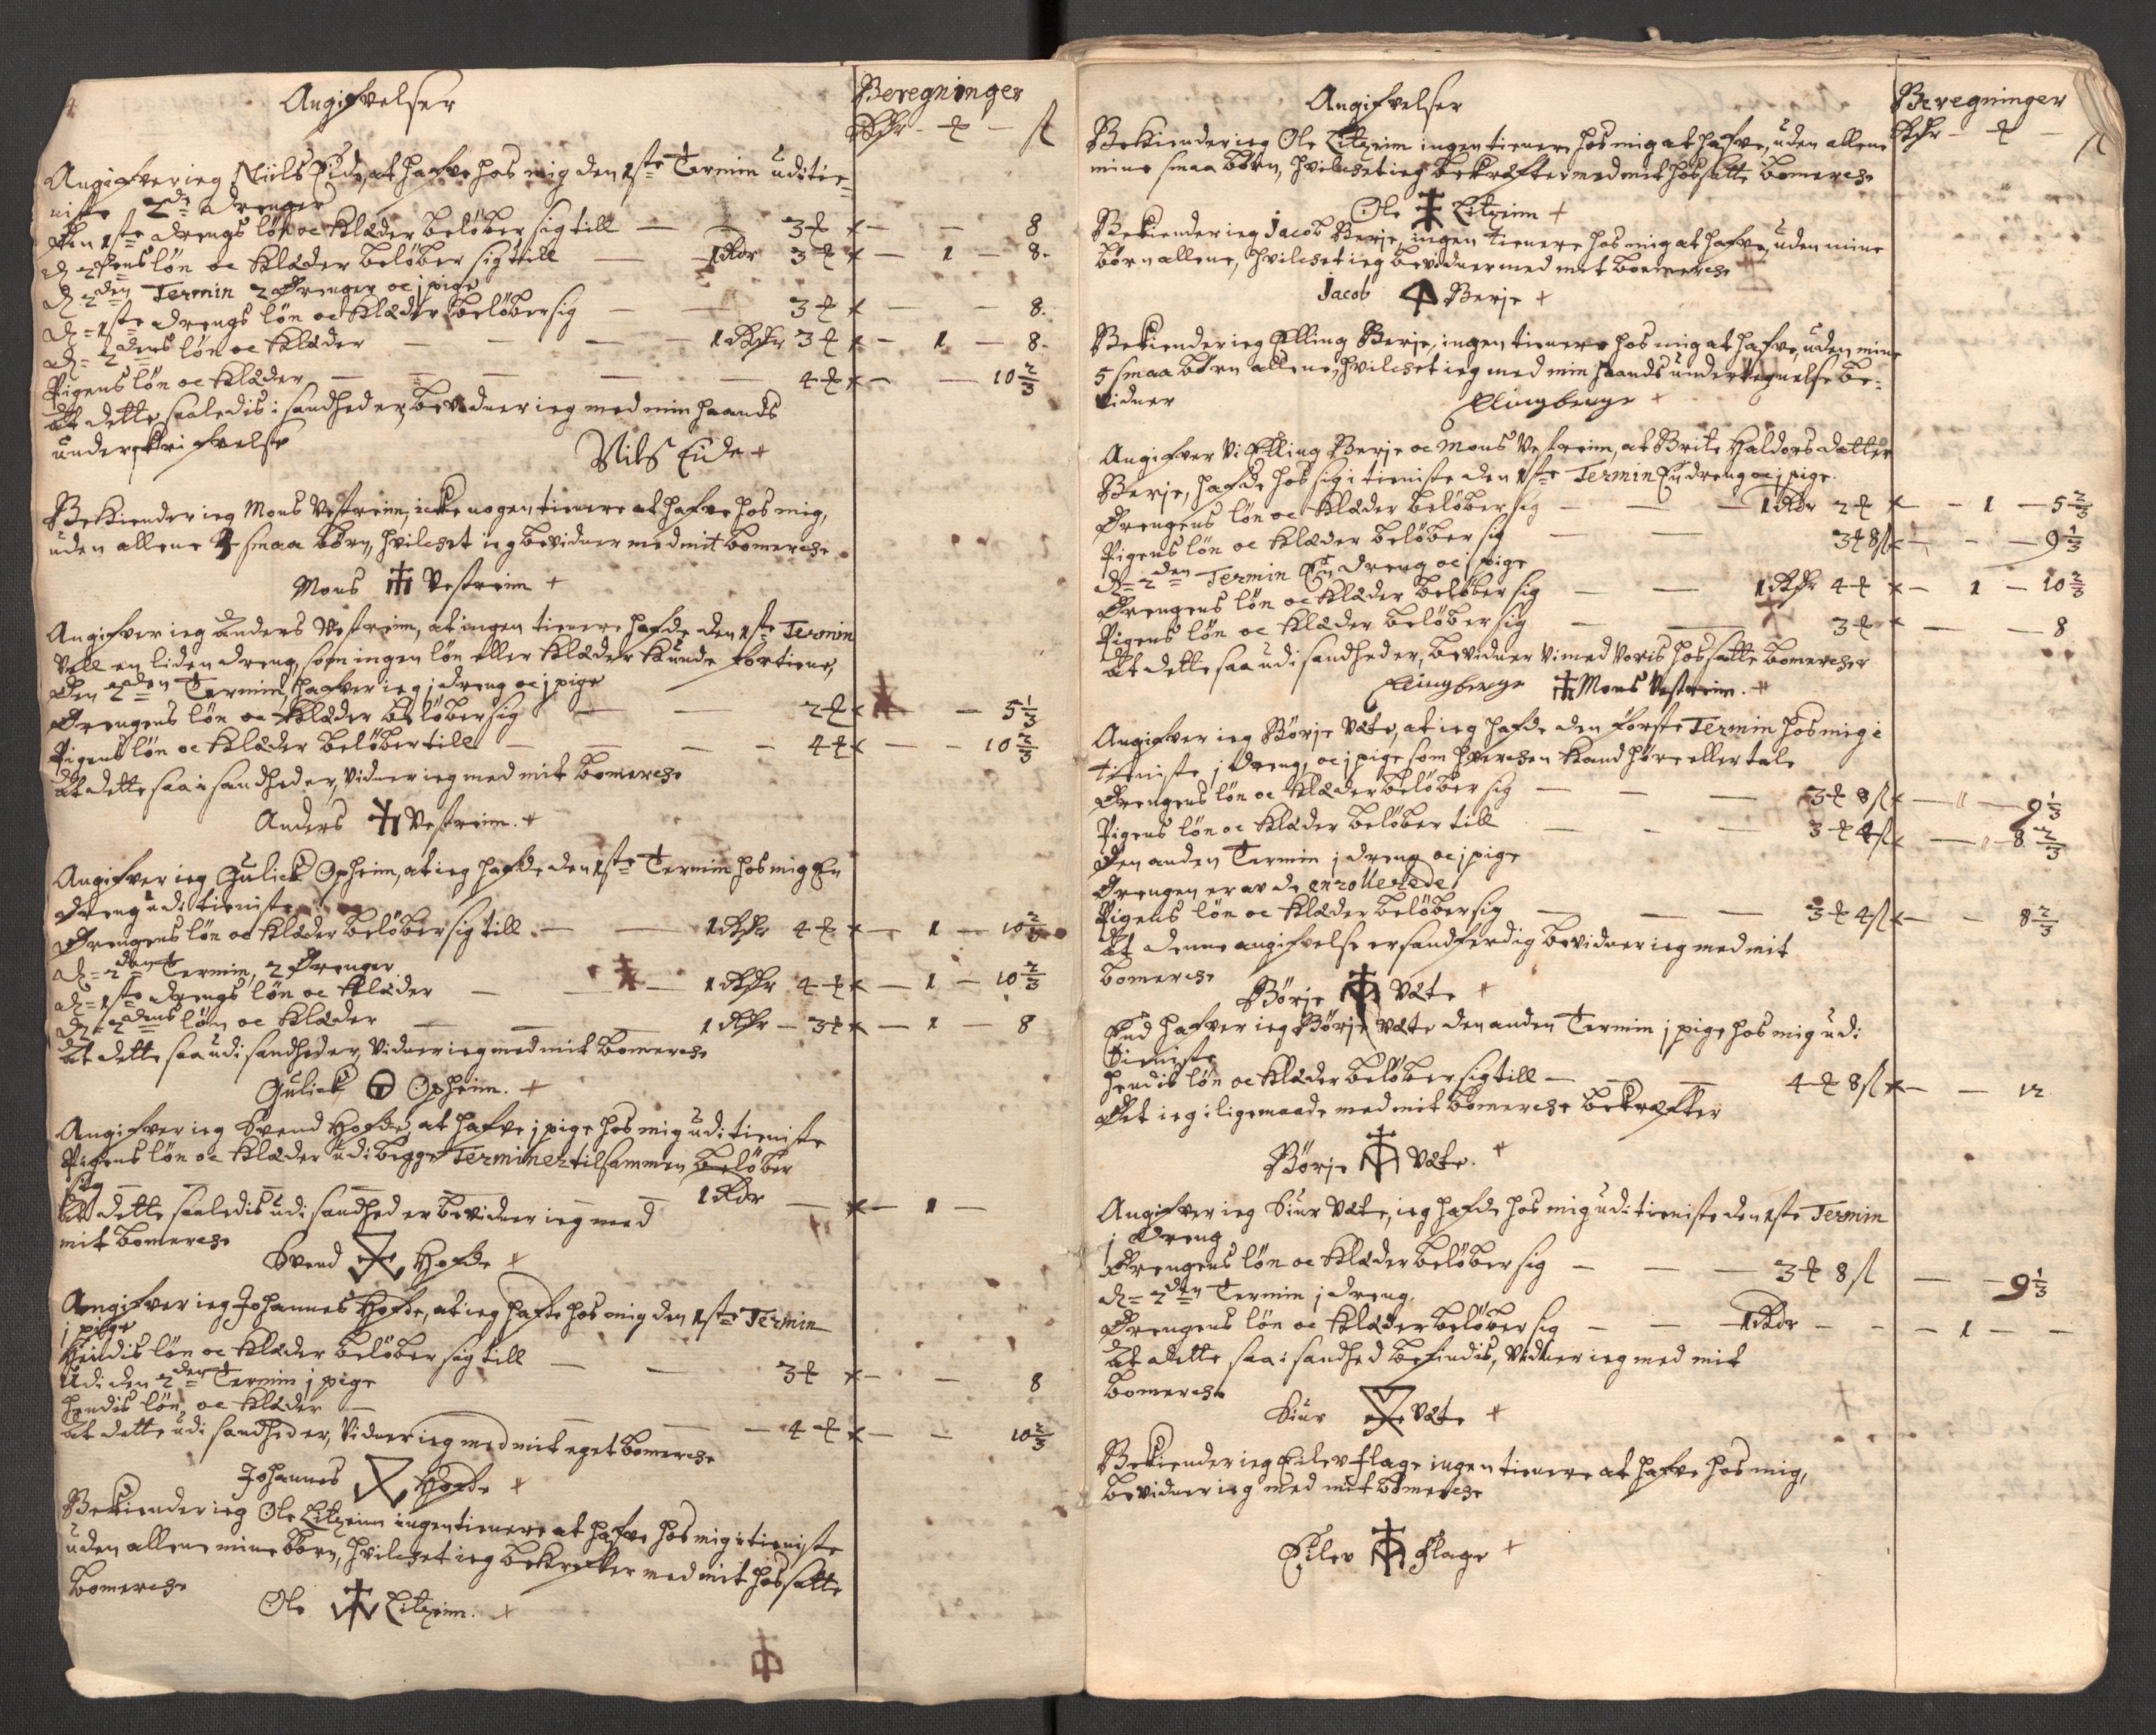 Angifvelser
Beregninger
Rdr - ₰ - ß
Angifver ieg Niels Eide, at hafve hos mig den 1ste Termin udi tie-
niste 2de drenger
Den 1ste drengs løn oc Klæder beløber sig till — — 3 ₰ × — — 8
D. 2dens løn oc Klæder beløber sig till — 1 Rdr 3 ₰ × — 1 — 8.
D. 2den Termin 2 Drenger oc j pige
D = 1ste drengs løn oc Klæder beløber sig — — 3 ₰ × — — 8.
D = 2dens løn oc Klæder — — — 1 Rdr 3 ₰ × — 1 — 8.
Pigens løn oc Klæder — — — — 4 ₰ × — — 10 2/3
At dette saaledis i sandhed er, bevidner ieg med min haands
underskrifvelse
Nils Eide +
Bekiender ieg Mons Vestreim, icke nogen tienere at hafve hos mig,
uden allene 3 smaa børn, hvilcket ieg bevidner med mit bomercke
Mons Vestreim +
Angifver ieg Anders Vestreim, at ingen tienere hafde den 1ste Termin
Vell en liden dreng, som ingen løn eller Klæder kunde fortiene,
Den 2den Termin, hafver ieg j dreng oc j pige
Drengens løn oc Klæder beløber sig — — 2 ₰ × — — 5 1/3
Pigens løn oc Klæder beløber till — — — 4 ₰ × — — 10 2/3
At dette saa i sandhed er, Vidner ieg med mit bomercke
Anders Vestreim. +
Angifver ieg Gulick Opheim, at ieg hafde den 1ste Termin hos mig En
dreng udi tieniste
Drengens løn oc Klæder beløber sig till — — 1 Rdr 4 ₰ × — 1 — 10 2/3
D = 2den Termin, 2 Drenger
D = 1ste drengs løn oc Klæder — — 1 Rdr 4 ₰ × — 1 — 10 2/3
D = 2dens løn oc Klæder — — — 1 Rdr — 3 ₰ × — 1 — 8
At dette saa udi sandhed er, Vidner ieg med mit bomercke
Gulick Opheim. +
Angifver ieg Svend Hofde, at hafve j pige hos mig udi tieniste
Pigens løn oc Klæder udi begge Terminer tilsammen beløber
sig — — — — — 1 Rdr — × — 1 —
At dette saaledis udi sandhed er bevidner ieg med
mit bomercke
Svend Hofde +
Angifver ieg Johannes Hofde, at ieg hafde hos mig den 1ste Termin
j pige
Hendis løn oc Klæder beløber sig till — — 3 ₰ × — — 8
Udi den 2den Termin j pige
Hendis løn oc Klæder — — — — 4 ₰ × — — 10 2/3
At dette udi sandhed er, Vidner ieg med mit eget bomercke
Johannes Hofde +
Bekiender ieg Ole Litzeim ingen tienere at hafve hos mig i tieniste
uden allene mine børn, hvilcket ieg bekrefter med mit hossatte
bomercke
Ole Litzeim. +
Angifvelser
Beregninger
Rdr — ₰ — ß
Bekiender ieg Ole Litzeim ingen tienere hos mig at hafve, uden allene
mine smaa børn, hvilcket ieg bekræfter med mit hossatte bomercke
Ole Litzeim +
Bekiender ieg Jacob Berje, ingen tienere hos mig at hafve, uden mine
børn allene, hvilcket ieg bevidner med mit bomercke
Jacob Berje +
Bekiender ieg Elling Berje, ingen tienere hos mig at hafve, uden mine
5 smaa børn allene, hvilcket ieg med min haands undertegnelse be-
vidner
Ellingberge +
Angifver Vi Elling Berje oc Mons Vestreim, at Brite Haldors datter
Berje, hafde hos sig i tieniste den 1ste Termin En dreng oc j pige.
Drengens løn oc Klæder beløber sig — — — 1 Rdr 2 ₰ × — 1 — 5 2/3
Pigens løn oc Klæder beløber sig — — 3 ₰ 8 ß × — — 9 1/3
D = 2den Termin En dreng oc j pige
Drengens løn oc Klæder beløber sig — — 1 Rdr 4 ₰ × — 1 — 10 2/3
Pigens løn oc Klæder beløber sig — — 3 ₰ × — — 8
At dette saa udi sandhed er, bevidner Vi med Voris hossatte bomercker
Ellingberge Mons Vestreim. +
Angifver ieg Børje Væte, at ieg hafde den første Termin hos mig i
tieniste j dreng, oc j pige som hvercken kand høre eller tale
Drengens løn oc Klæder beløber sig — — — 3 ₰ 8 ß × — " — 9 1/3
Pigens løn oc Klæder beløber till — — — 3 ₰ 4 ß × — " — 8 2/3
Den anden Termin j dreng oc j pige
Drengen er av de enrollerede
Pigens løn oc Klæder beløber sig — — — 3 ₰ 4 ß × — — 8 2/3
At denne angifvelse er sandferdig bevidner ieg med mit
bomercke
Børje Væte +
End hafver ieg Børje Væte den anden Termin j pige hos mig udi
tieniste
Hendis løn oc Klæder beløber sig till — — — 4 ₰ 8 ß × — — 12
Det ieg i ligemaade med mit bomercke bekræfter
Børje Væte. +
Angifver ieg Siur Væte, ieg hafde hos mig udi tieniste den 1ste Termin
j Dreng
Drengens løn oc Klæder beløber sig — — — 3 ₰ 8 ß — — 9 1/3
D = 2den Termin j dreng.
Drengens løn oc Klæder beløber sig — — 1 Rdr — — 1 — —
At dette saa i sandhed befindis, Vidner ieg med mit
bomercke
Siur Væte +
Bekiender ieg Eilev Flage ingen tienere at hafve hos mig,
bevidner ieg med mit bomercke
Eilev Flage +